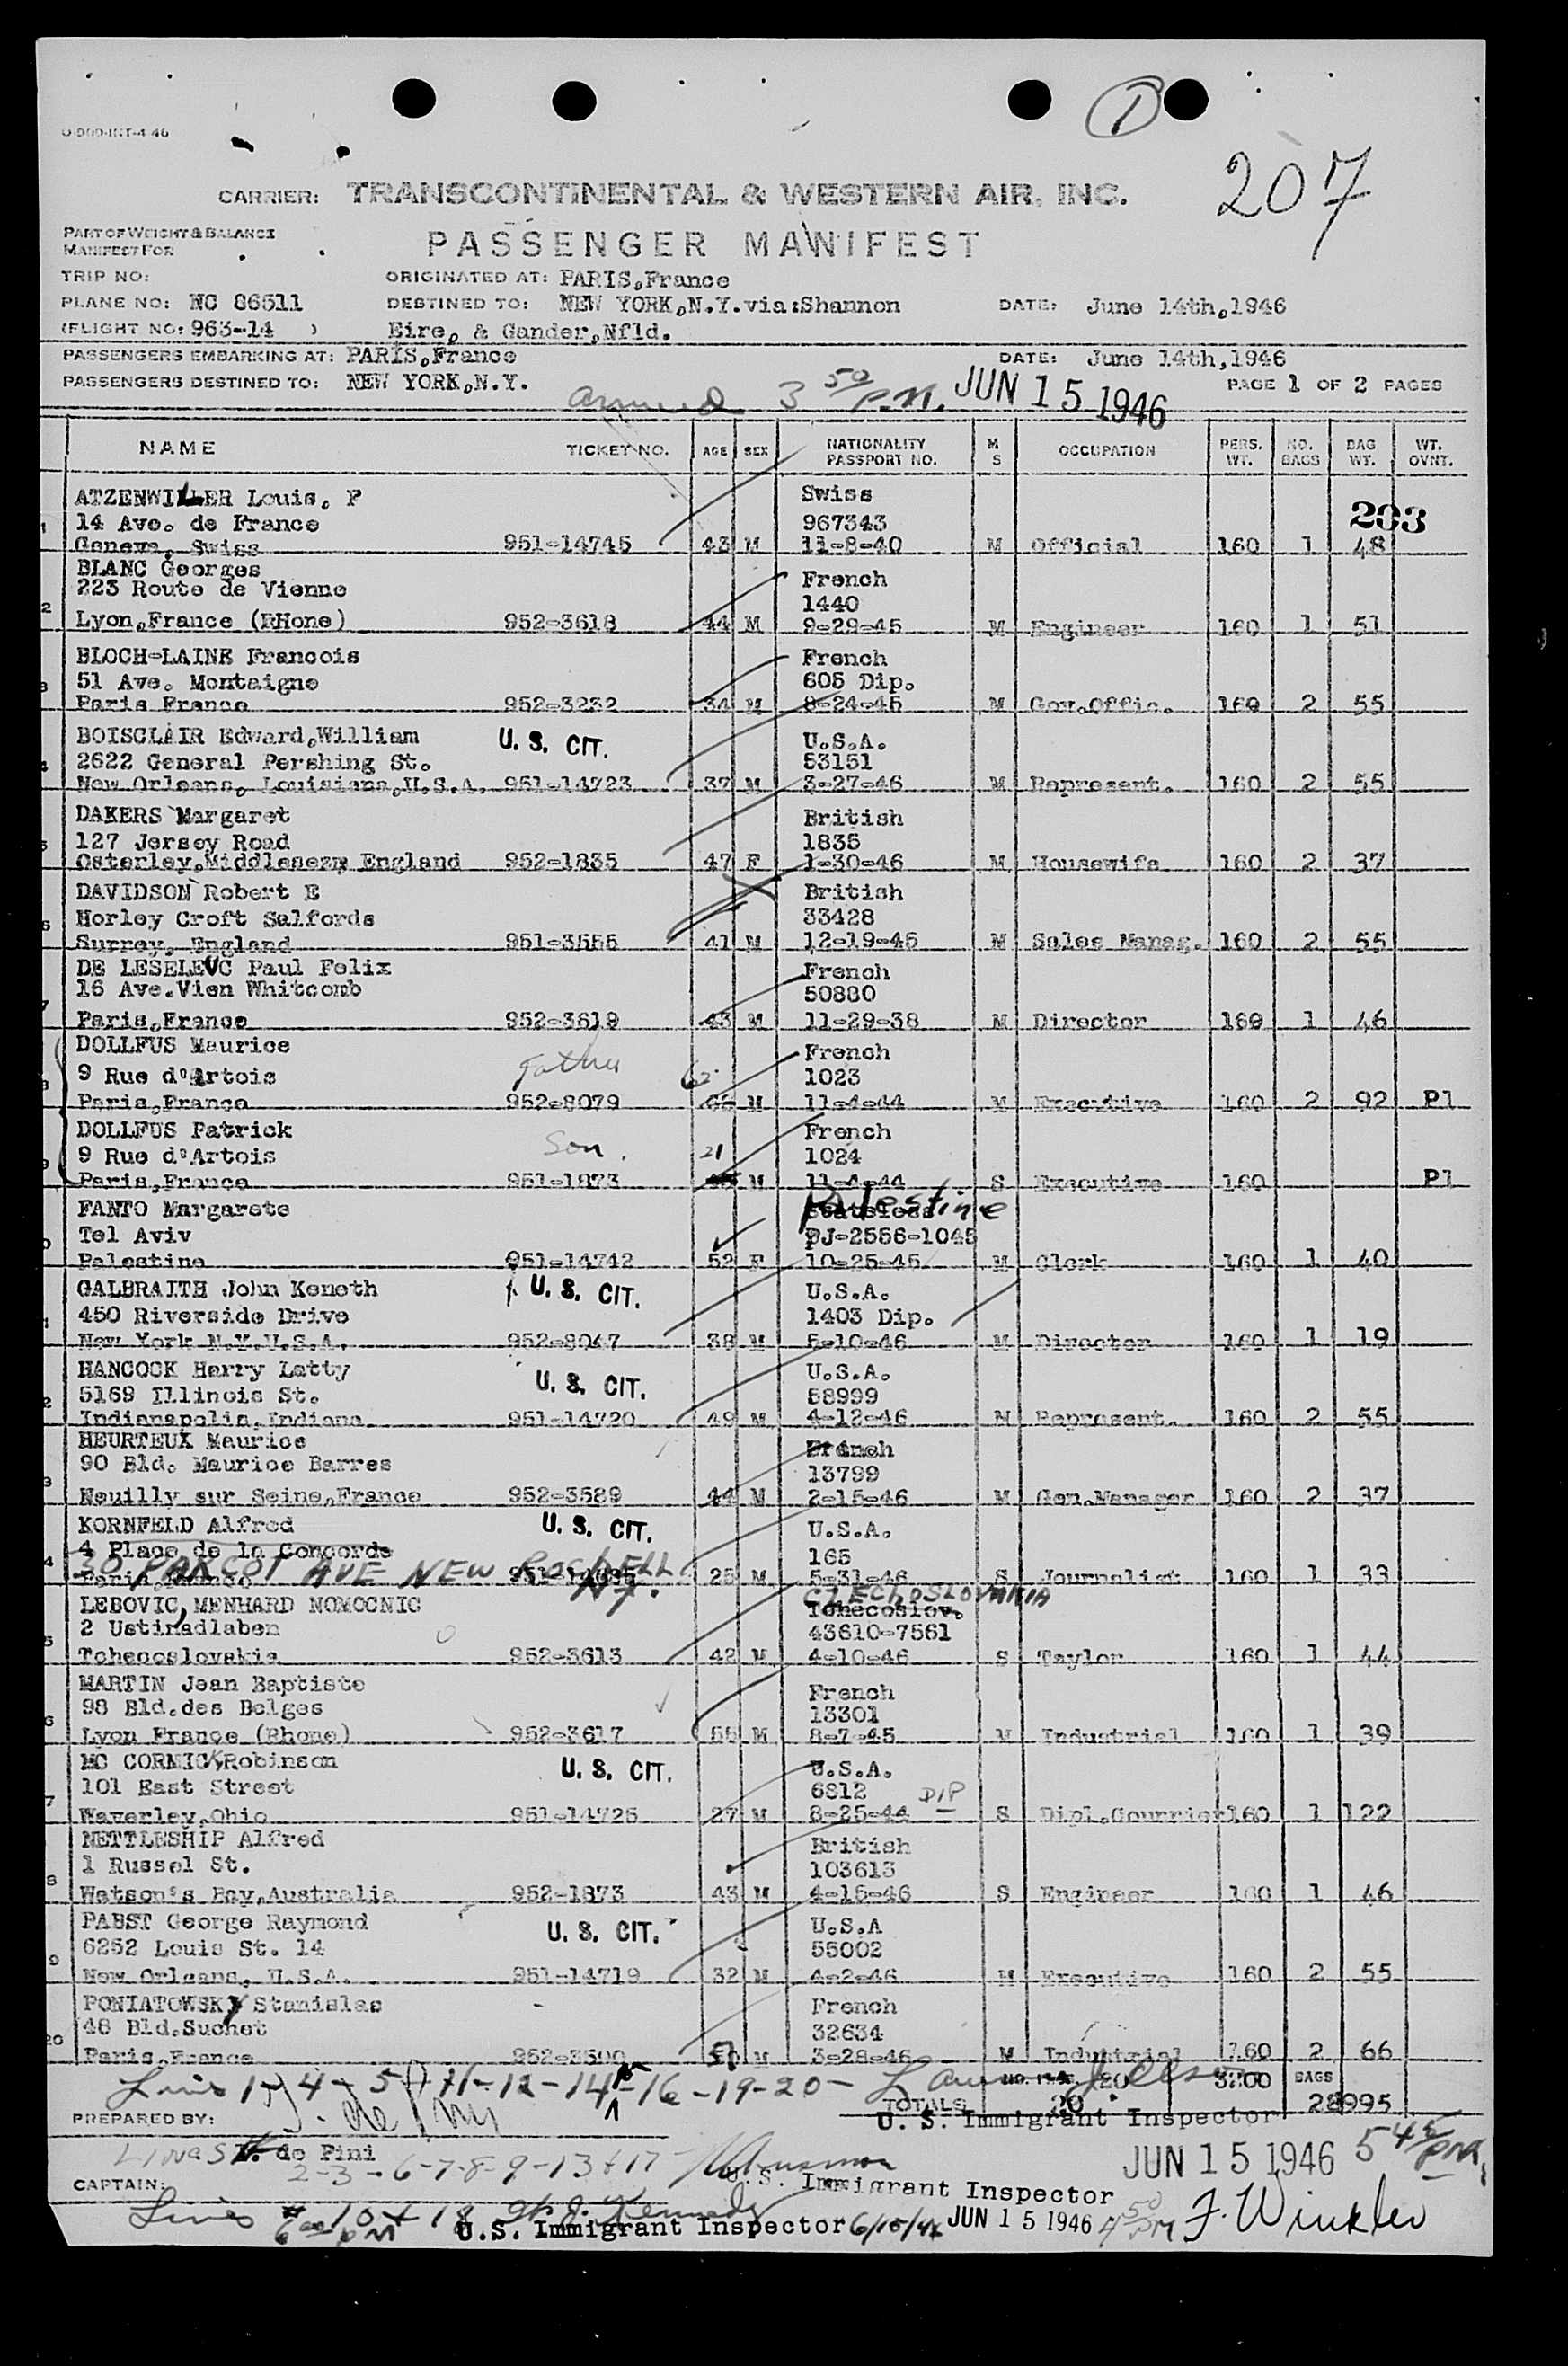 O-900-INT-4-46
1
207
CARRIER: TRANSCONTINENTAL & WESTERN AIR, INC.
PART OF WEIGHT & BALANCE
MANIFEST FOR
PASSENGER MANIFEST
TRIP NO: ORIGINATED AT: PARIS,France
PLANE NO: NC 86511 DESTINED TO: NEW YORK,N.Y.via:Shannon DATE: June 14th,1946
(FLIGHT NO: 963-14 ) Eire, & Gander,Nfld.
PASSENGERS EMBARKING AT: PARIS,France DATE: June 14th,1946
PASSENGERS DESTINED TO: NEW YORK,N.Y. PAGE 1 OF 2 PAGES
arrived 3 50 P.M. JUN 15 1946
NAME TICKET NO. AGE SEX NATIONALITY PASSPORT NO. M S OCCUPATION PERS. WT. NO. BAGS BAG WT. WT. OVNT.
203
ATZENWILLER Louis, F Swiss
1 14 Ave. de France 967343
Geneva, Swiss 951-14745 43 M 11-8-40 M Official 160 1 48
BLANC Georges French
2 223 Route de Vienne 1440
Lyon,France (RHone) 952-3618 44 M 9-29-45 M Engineer 160 1 51
BLOCH-LAINE Francois French
3 51 Ave. Montaigne 605 Dip.
Paris France 952-3232 34 M 8-24-45 M Gov.Offic. 160 2 55
BOISCLAIR Edward,William U. S. CIT. U.S.A.
4 2622 General Pershing St. 53151
New Orleans, Louisiana,U.S.A. 951-14723 37 M 3-27-46 M Represent. 160 2 55
DAKERS Margaret British
5 127 Jersey Road 1835
Osterley,Middlesex, England 952-1835 47 F 1-30-46 M Housewife 160 2 37
DAVIDSON Robert E British
6 Horley Croft Salfords 33428
Surrey, England 951-3555 41 M 12-19-45 M Sales Manag. 160 2 55
DE LESELEUC Paul Felix French
7 16 Ave.Vion Whitcomb 50880
Paris,France 952-3619 43 M 11-29-38 M Director 160 1 46
DOLLFUS Maurice French
8 9 Rue d'Artois Father 62 1023
Paris,France 952-8079 M 11-4-44 M Executive 160 2 92 Pl
DOLLFUS Patrick French
9 9 Rue d'Artois Son. 21 1024
Paris,France 951-1873 M 11-4-44 S Executive 160 Pl
FANTO Margarete Stateless Palestine
0 Tel Aviv PJ-2556-1045
Palestine 951-14742 52 F 10-25-45 M Clerk 160 1 40
GALBRAITH John Keneth U. S. CIT. U.S.A.
1 450 Riverside Drive 1403 Dip.
New York N.Y.U.S.A. 952-8047 38 M 5-10-46 M Director 160 1 19
HANCOCK Harry Latty U. S. CIT. U.S.A.
2 5169 Illinois St. 58999
Indianapolis,Indiana 951-14720 49 M 4-12-46 M Represent. 160 2 55
HEURTEUX Maurice French
3 90 Bld. Maurice Barres 13799
Neuilly sur Seine,France 952-3589 44 M 2-15-46 M Gen.Manager 160 2 37
KORNFELD Alfred U. S. CIT. U.S.A.
4 4 Place de la Concorde 165
30 PAXCOT AVE NEW ROCHELL N.Y.
Paris,France 25 M 5-31-46 S Journalist 160 1 33
LEBOVIC, MENHARD NOMOCNIC CZECHOSLOVAKIA Tchecoslov.
5 2 Ustinadlaben 43610-7561
Tchecoslovakia 952-3613 42 M 4-10-46 S Taylor 160 1 44
MARTIN Jean Baptiste French
6 98 Bld.des Belges 13301
Lyon France (Rhone) 952-3617 55 M 8-7-45 M Industrial 160 1 39
MC CORMICK,Robinson U. S. CIT. U.S.A.
7 101 East Street 6812 DIP
Waverley,Ohio 951-14725 27 M 8-25-44 S Dipl.Courrier 160 1 122
NETTLESHIP Alfred British
8 1 Russel St. 103613
Watson's Bay,Australia 952-1873 43 M 4-15-46 S Engineer 160 1 46
PABST George Raymond U. S. CIT. U.S.A
9 6252 Louis St. 14 55002
New Orleans, U.S.A. 951-14719 32 M 4-2-46 M Executive 160 2 55
PONIATOWSKY Stanislas French
20 48 Bld.Suchet 32634
Paris,France 952-3590 M 3-28-46 M Industrial 160 2 66
Lines 1-4-5-11-12-14-15-16-19-20-
NO. PASS. 20 3200 BAGS
TOTALS 20 28 995
PREPARED BY: U. S. Immigrant Inspector
de Pini
LINES 2-3-6-7-8-9-13+17
JUN 15 1946 5 45 PM
CAPTAIN: U. S. Immigrant Inspector
Lines # 10 + 18 Kennedy
6 00 PM U.S. Immigrant Inspector 6/15/46 JUN 15 1946 4 50 PM F. Winkler